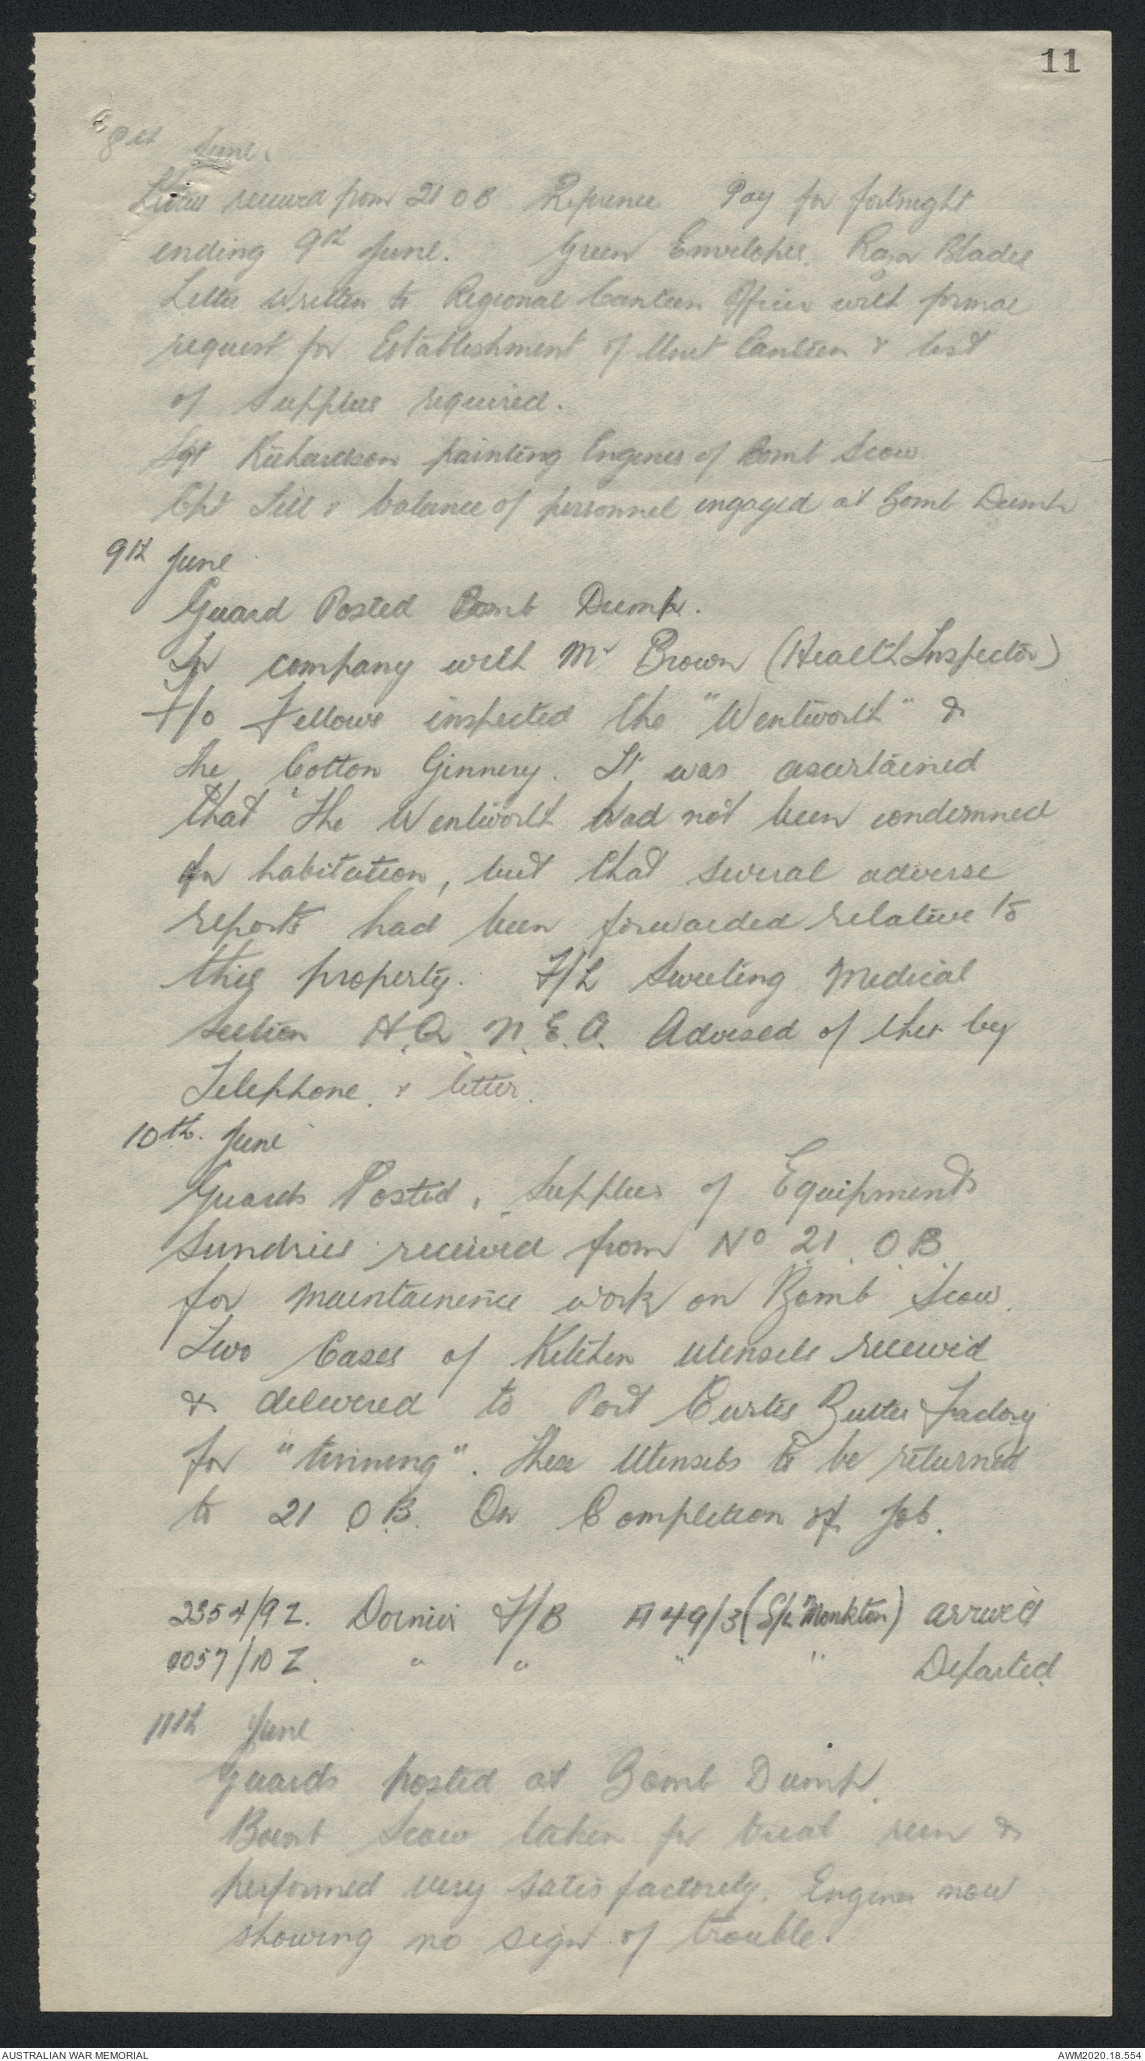 11
8th June.
Letter received from 21 OB Reference Pay for fortnight
ending 9th June. Green Envelopes. Razor Blades
Letter written to Regional Canteen Officer with formal
request for Establishment of Unit Canteen & list
of supplies required.
Sgt Richardson painting Engines of Bomb Scow
Cpl Sill & balance of personnel engaged at Bomb Dump
9th June
Guard Posted Bomb Dump.
In company with Mr Brown (Health Inspector)
F/O Fellows inspected the "Wentworth" &
the Cotton Ginnery. It was ascertained
that "The Wentworth had not been condemned
for habitation, but that several adverse
reports had been forwarded relative to
this property. F/L Sweeting Medical
Section H.Q. N.E.A. Advised of this by
Telephone. & letter.
10th. June
Guards Posted. Supplies of Equipment &
Sundries received from No 21. O.B.
for maintainence work on Bomb Scow.
Two Cases of Kitchen utensils received
& delivered to Port Curtis Butter Factory
for "tinning". These Utensils to be returned
to 21 O.B. On Completion of Job.
2354/9 Z. Dornier F/B A 49/3 (S/L Monkton) arrived
0057/10 Z. " " " " Departed.
11th June
Guards posted at Bomb Dump.
Bomb Scow taken for trial run &
performed very satisfactorily. Engines now
showing no sign of trouble.
AUSTRALIAN WAR MEMORIAL
AWM2020.18.554